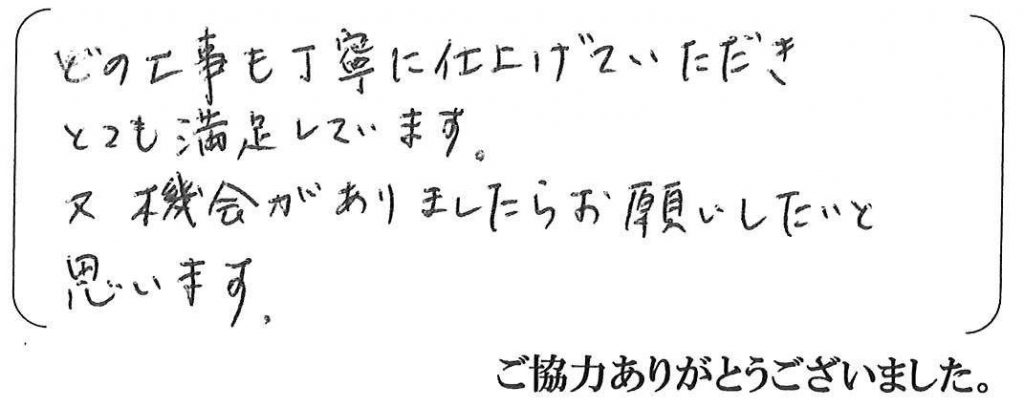 どの工事も丁寧に仕上げていただき
とても満足しています。
又機会がありましたらお願いしたいと
思います。
ご協力ありがとうございました。